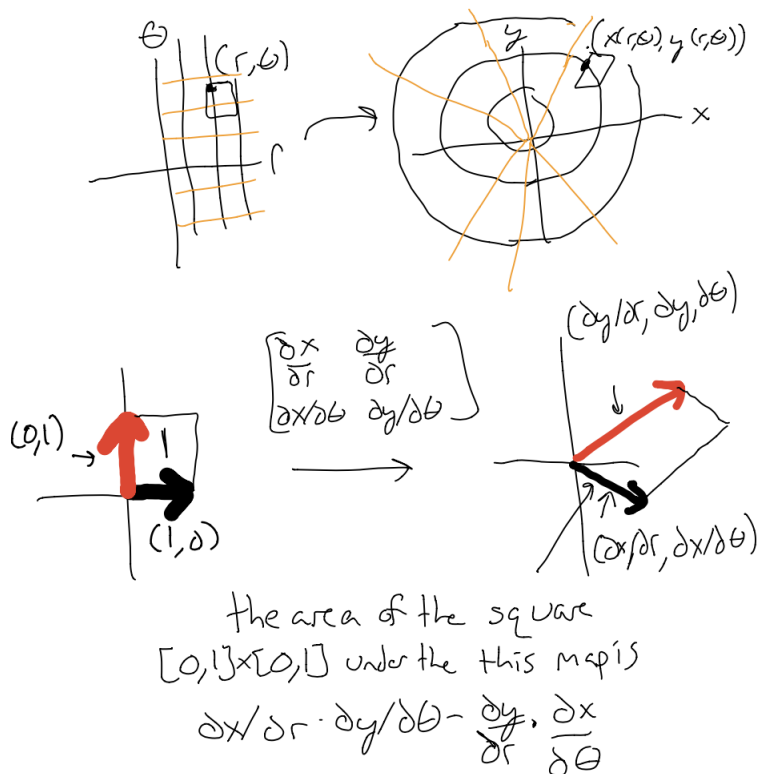 θ
(r,θ)
r
y
(x(r,θ), y(r,θ))
x
(∂y/∂r, ∂y, ∂θ)
∂x/∂r ∂y/∂r
∂x/∂θ ∂y/∂θ
(0,1)
1
(1,0)
(∂x/∂r, ∂x/∂θ)
the area of the square
[0,1]×[0,1] under the this map is
∂x/∂r · ∂y/∂θ - ∂y/∂r · ∂x/∂θ